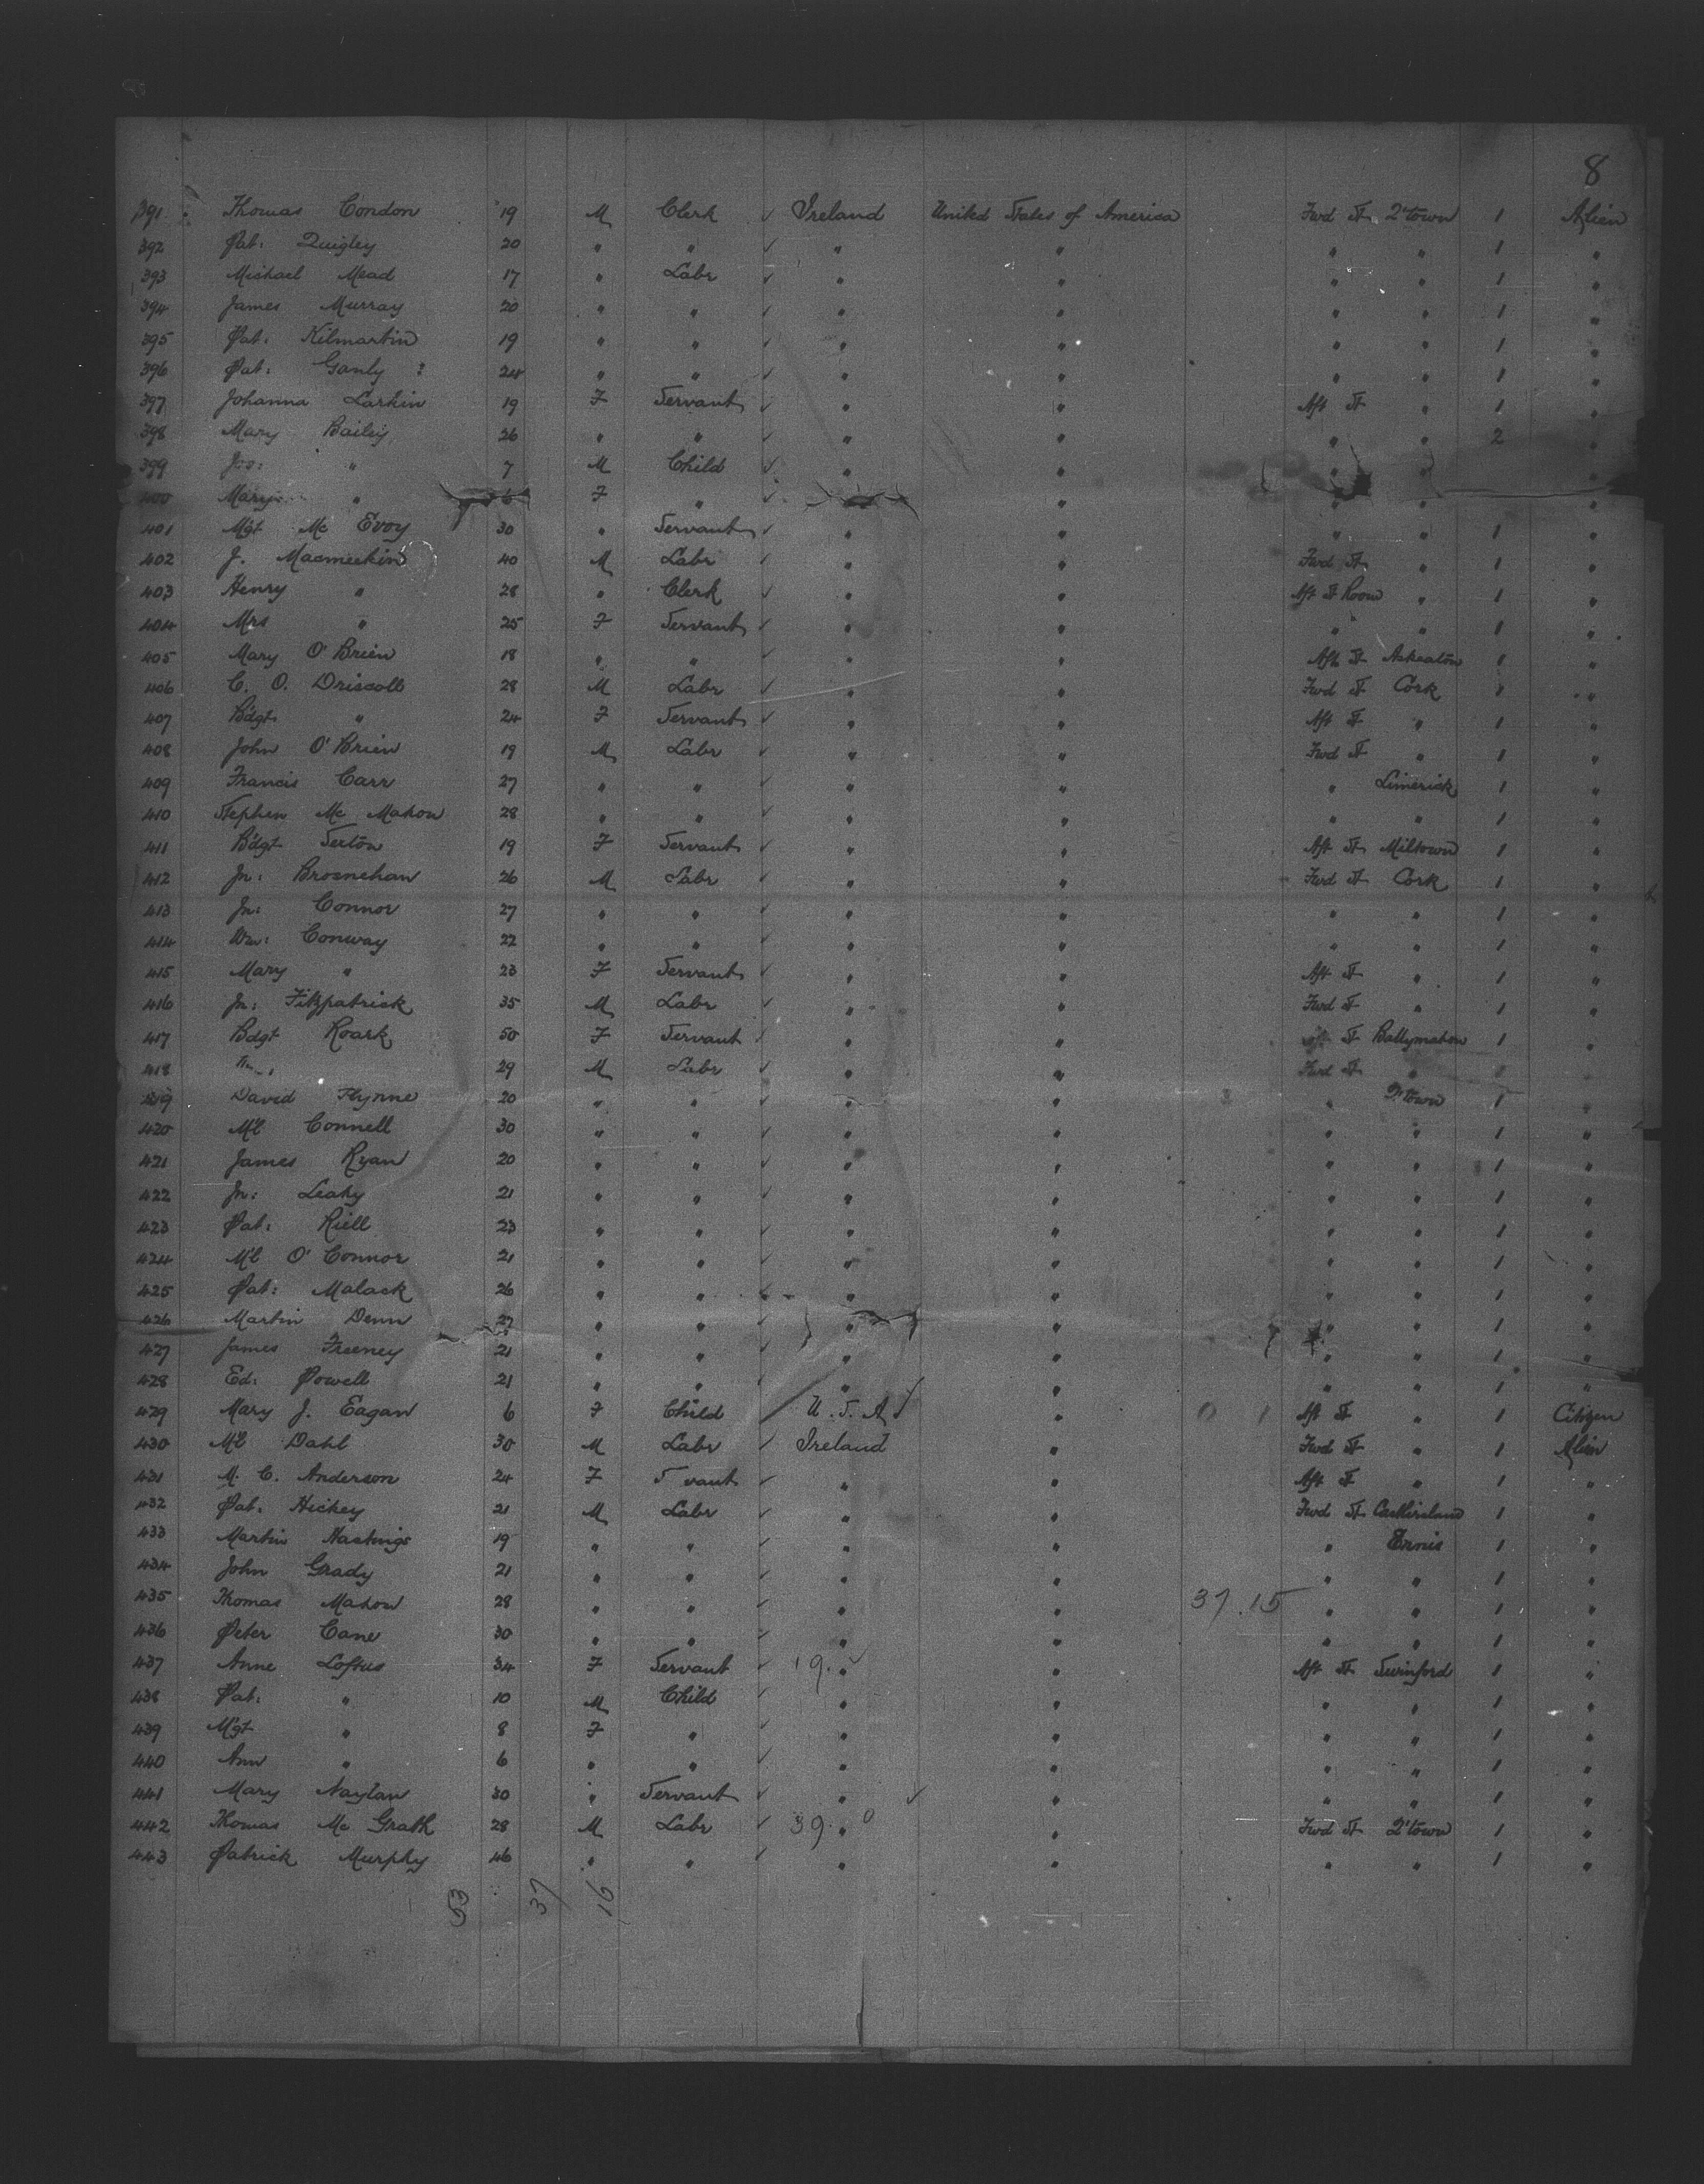 8
391 Thomas Condon 19 M Clerk ✓ Ireland United States of America Fwd St Q'town 1 Alien
392 Pat: Quigley 20 " " ✓ " " " " 1 "
393 Michael Mead 17 " Labr ✓ " " " " 1 "
394 James Murray 20 " " ✓ " " " " 1 "
395 Pat: Kilmartin 19 " " ✓ " " " " 1 "
396 Pat: Ganly : 24 " " ✓ " " " " 1 "
397 Johanna Larkin 19 F Servant ✓ " " Aft St " 1 "
398 Mary Bailey 26 " " ✓ " " " " 2 "
399 Jos: " 7 M Child ✓ " " " " "
400 Mary " 6 F " ✓ " " " "
401 Mgt Mc Evoy 30 " Servant ✓ " " " " 1 "
402 J. Macmeekin 40 M Labr ✓ " " Fwd St " 1 "
403 Henry " 28 " Clerk ✓ " " Aft St Room " 1 "
404 Mrs " 25 F Servant ✓ " " " " 1 "
405 Mary O'Brien 18 " " ✓ " " Aft St Askeaton 1 "
406 C. O. Driscoll 28 M Labr ✓ " " Fwd St Cork 1 "
407 Bdgt " 24 F Servant ✓ " " Aft St " 1 "
408 John O'Brien 19 M Labr ✓ " " Fwd St " 1 "
409 Francis Carr 27 " " ✓ " " " Limerick 1 "
410 Stephen Mc Mahon 28 " " ✓ " " " " 1 "
411 Bdgt Sexton 19 F Servant ✓ " " Aft St Miltown 1 "
412 Jn: Brosnehan 26 M Labr ✓ " " Fwd St Cork 1 "
413 Jn: Connor 27 " " ✓ " " " " 1 "
414 Wm: Conway 22 " " ✓ " " " " 1 "
415 Mary " 23 F Servant ✓ " " Aft St " 1 "
416 Jn: Fitzpatrick 35 M Labr ✓ " " Fwd St " 1 "
417 Bdgt Roark 50 F Servant ✓ " " Aft St Ballymahon 1 "
418 29 M Labr ✓ " " Fwd St " "
419 David Flynne 20 " " ✓ " " " Q'town 1 "
420 Ml Connell 30 " " ✓ " " " " 1 "
421 James Ryan 20 " " ✓ " " " " 1 "
422 Jn: Leahy 21 " " ✓ " " " " 1 "
423 Pat: Riell 23 " " ✓ " " " " 1 "
424 Ml O'Connor 21 " " ✓ " " " " 1 "
425 Pat: Malack 26 " " ✓ " " " " 1 "
426 Martin Denn 27 " " ✓ " " " " 1 "
427 James Freeney 21 " " ✓ " " " " 1 "
428 Ed: Powell 21 " " ✓ " " " " 1 "
429 Mary J. Eagan 6 F Child U.S.A ✓ " 0 1 Aft St " 1 Citizen
430 Ml Dahl 30 M Labr ✓ Ireland " Fwd St " 1 Alien
431 M. C. Anderson 24 F S vant ✓ " " Aft St " 1 "
432 Pat: Hickey 21 M Labr ✓ " " Fwd St Castleisland 1 "
433 Martin Hastings 19 " " ✓ " " " Ennis 1 "
434 John Grady 21 " " ✓ " " " " 1 "
435 Thomas Mahon 28 " " ✓ " " 37.15 " " 1 "
436 Peter Cane 30 " " ✓ " " " " 1 "
437 Anne Loftus 34 F Servant ✓ 19. " ✓ " Aft St Swinford 1 "
438 Pat: " 10 M Child ✓ " " " " 1 "
439 Mgt " 8 F " ✓ " " " " 1 "
440 Ann " 6 " " ✓ " " " " 1 "
441 Mary Naylan 30 " Servant ✓ " ✓ " " " 1 "
442 Thomas Mc Grath 28 M Labr ✓ 39. " 0 " Fwd St Q'town 1 "
443 Patrick Murphy 46 " " ✓ " " " " 1 "
53 37 16